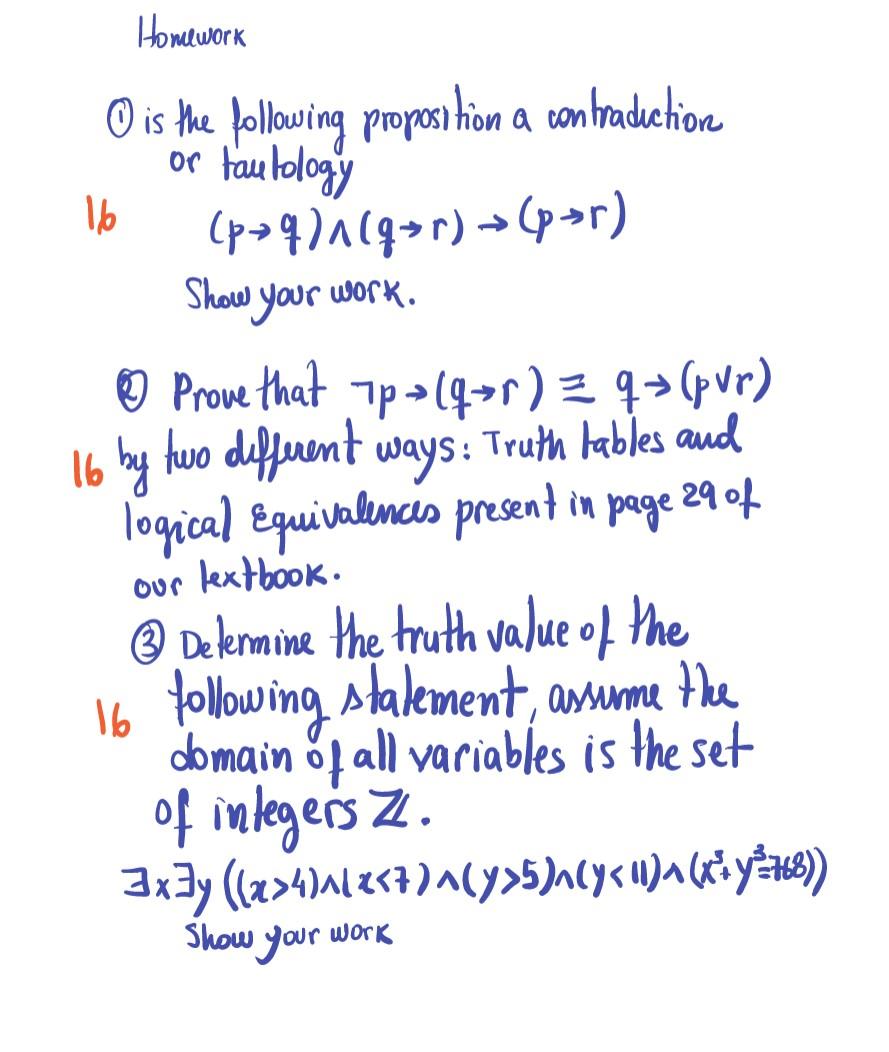 Homework
① is the following proposition a contradiction
or tautology
16
(p→q)∧(q→r)→(p→r)
Show your work.
② Prove that ¬p→(q→r) ≡ q→(p∨r)
16 by two different ways: Truth tables and
logical Equivalences present in page 29 of
our textbook.
③ Determine the truth value of the
16 following statement, assume the
domain of all variables is the set
of integers ℤ.
∃x∃y((x>4)∧(x<7)∧(y>5)∧(y<11)∧(x³+y³=768))
Show your work